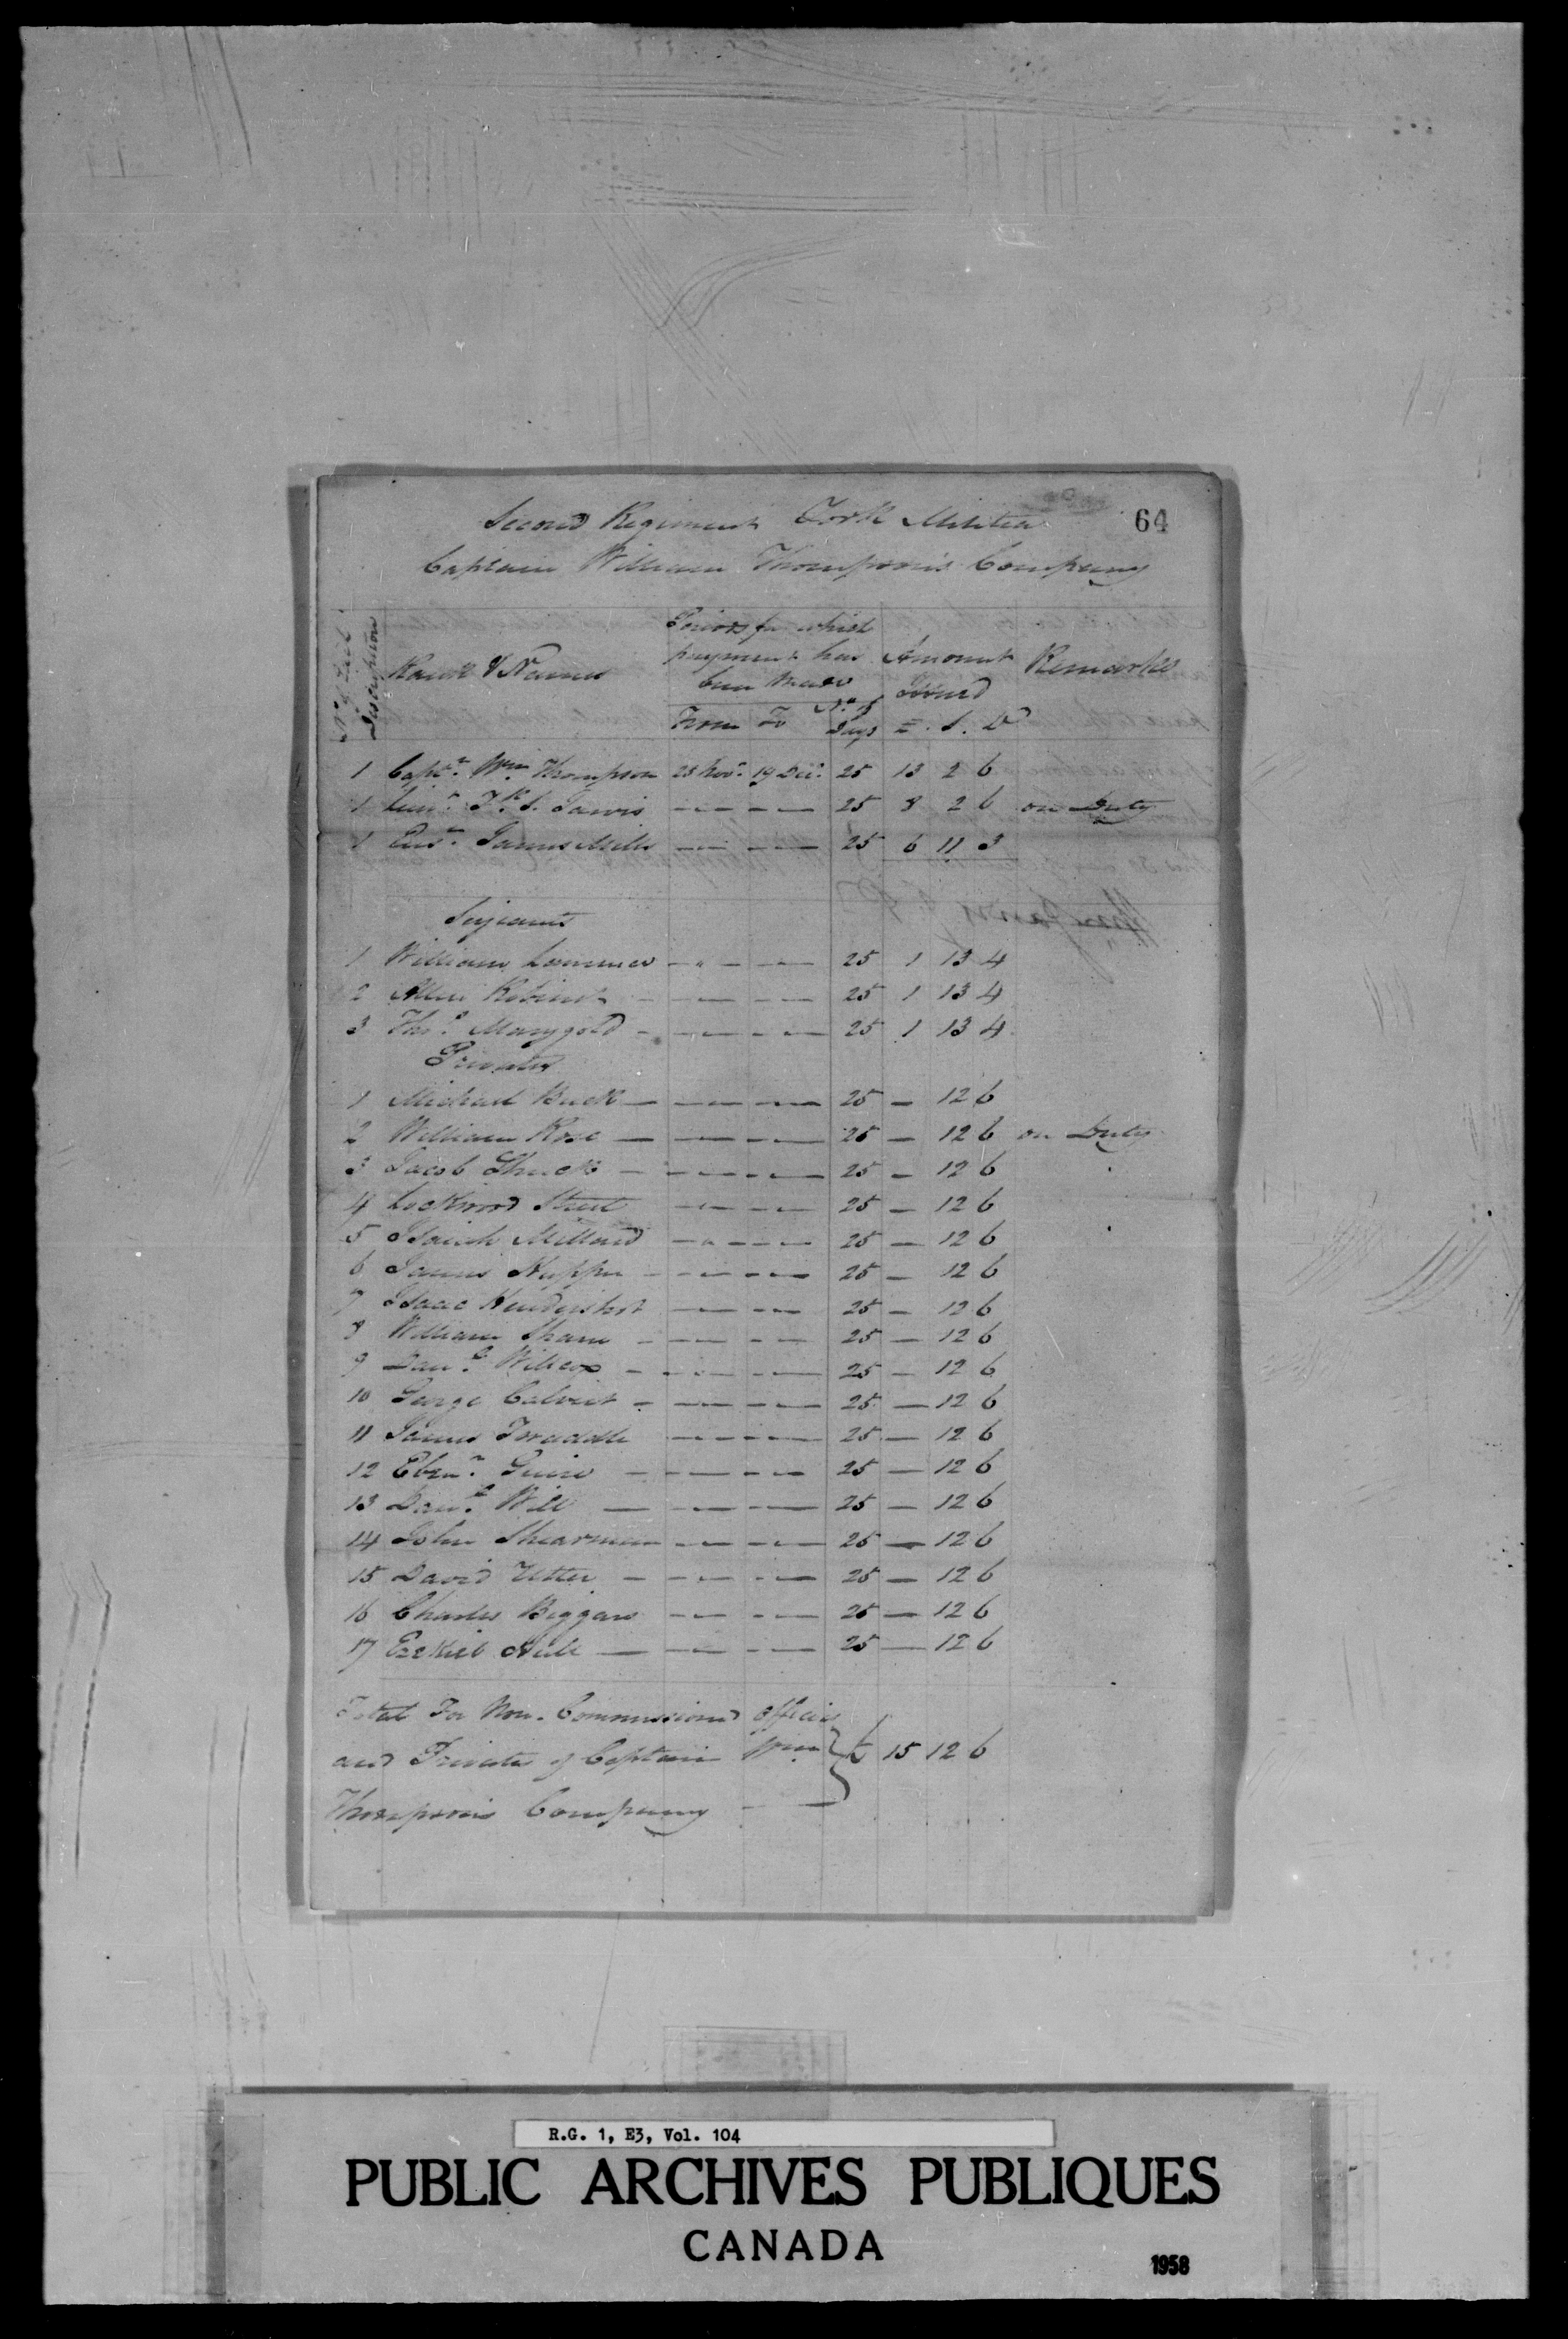 64
Second Regiment York Militia
Captain William Thompson's Company
No of Each Discription
Rank & Names
Periods for which
payment has
been made
Amount
Issued
Remarks
From To No of Days £. S. D
1 Captn. Wm. Thompson 25 Novr. 19 Decr. 25 13 2 6
1 Lieut. Jarvis 25 8 2 6 on Duty
1 Ens. James Mills 25 6 11 3
Serjeants
1 William 25 1 13 4
2 Allen Robinet 25 1 13 4
3 Thos. Marygold 25 1 13 4
Privates
1 Michael Buck 25 — 12 6
2 William Rose 25 — 12 6 on Duty
3 Jacob Shuck 25 — 12 6
4 Lockwood Street 25 — 12 6
5 Isaiah Millard 25 — 12 6
6 James 25 — 12 6
7 Isaac Hendershot 25 — 12 6
8 William Shane 25 — 12 6
9 Danl. Willcox 25 — 12 6
10 George Calvert 25 — 12 6
11 James Twaddle 25 — 12 6
12 Ebenr. 25 — 12 6
13 Danl. Will 25 — 12 6
14 John Shearman 25 — 12 6
15 David Utter 25 — 12 6
16 Charles Biggars 25 — 12 6
17 Ezekiel 25 — 12 6
Total For Non. Commissioned officers
and Privates of Captain Wm. £ 15 12 6
Thompson's Company
R.G. 1, E3, Vol. 104
PUBLIC ARCHIVES PUBLIQUES
CANADA
1958